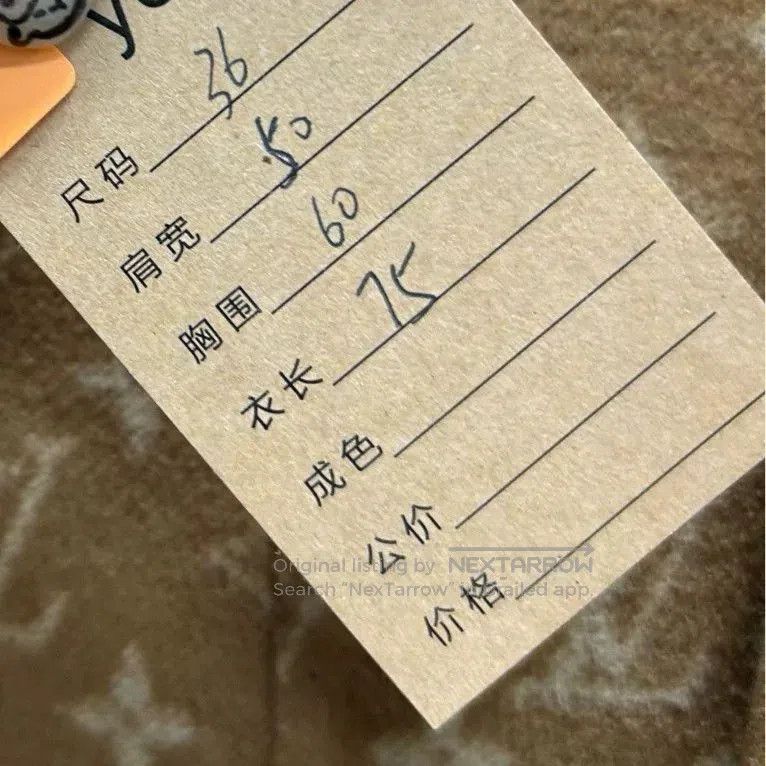 尺码 36
肩宽 50
胸围 60
衣长 75
成色
公价
价格
Original listing by NEXTARROW
Search "NexTarrow" on